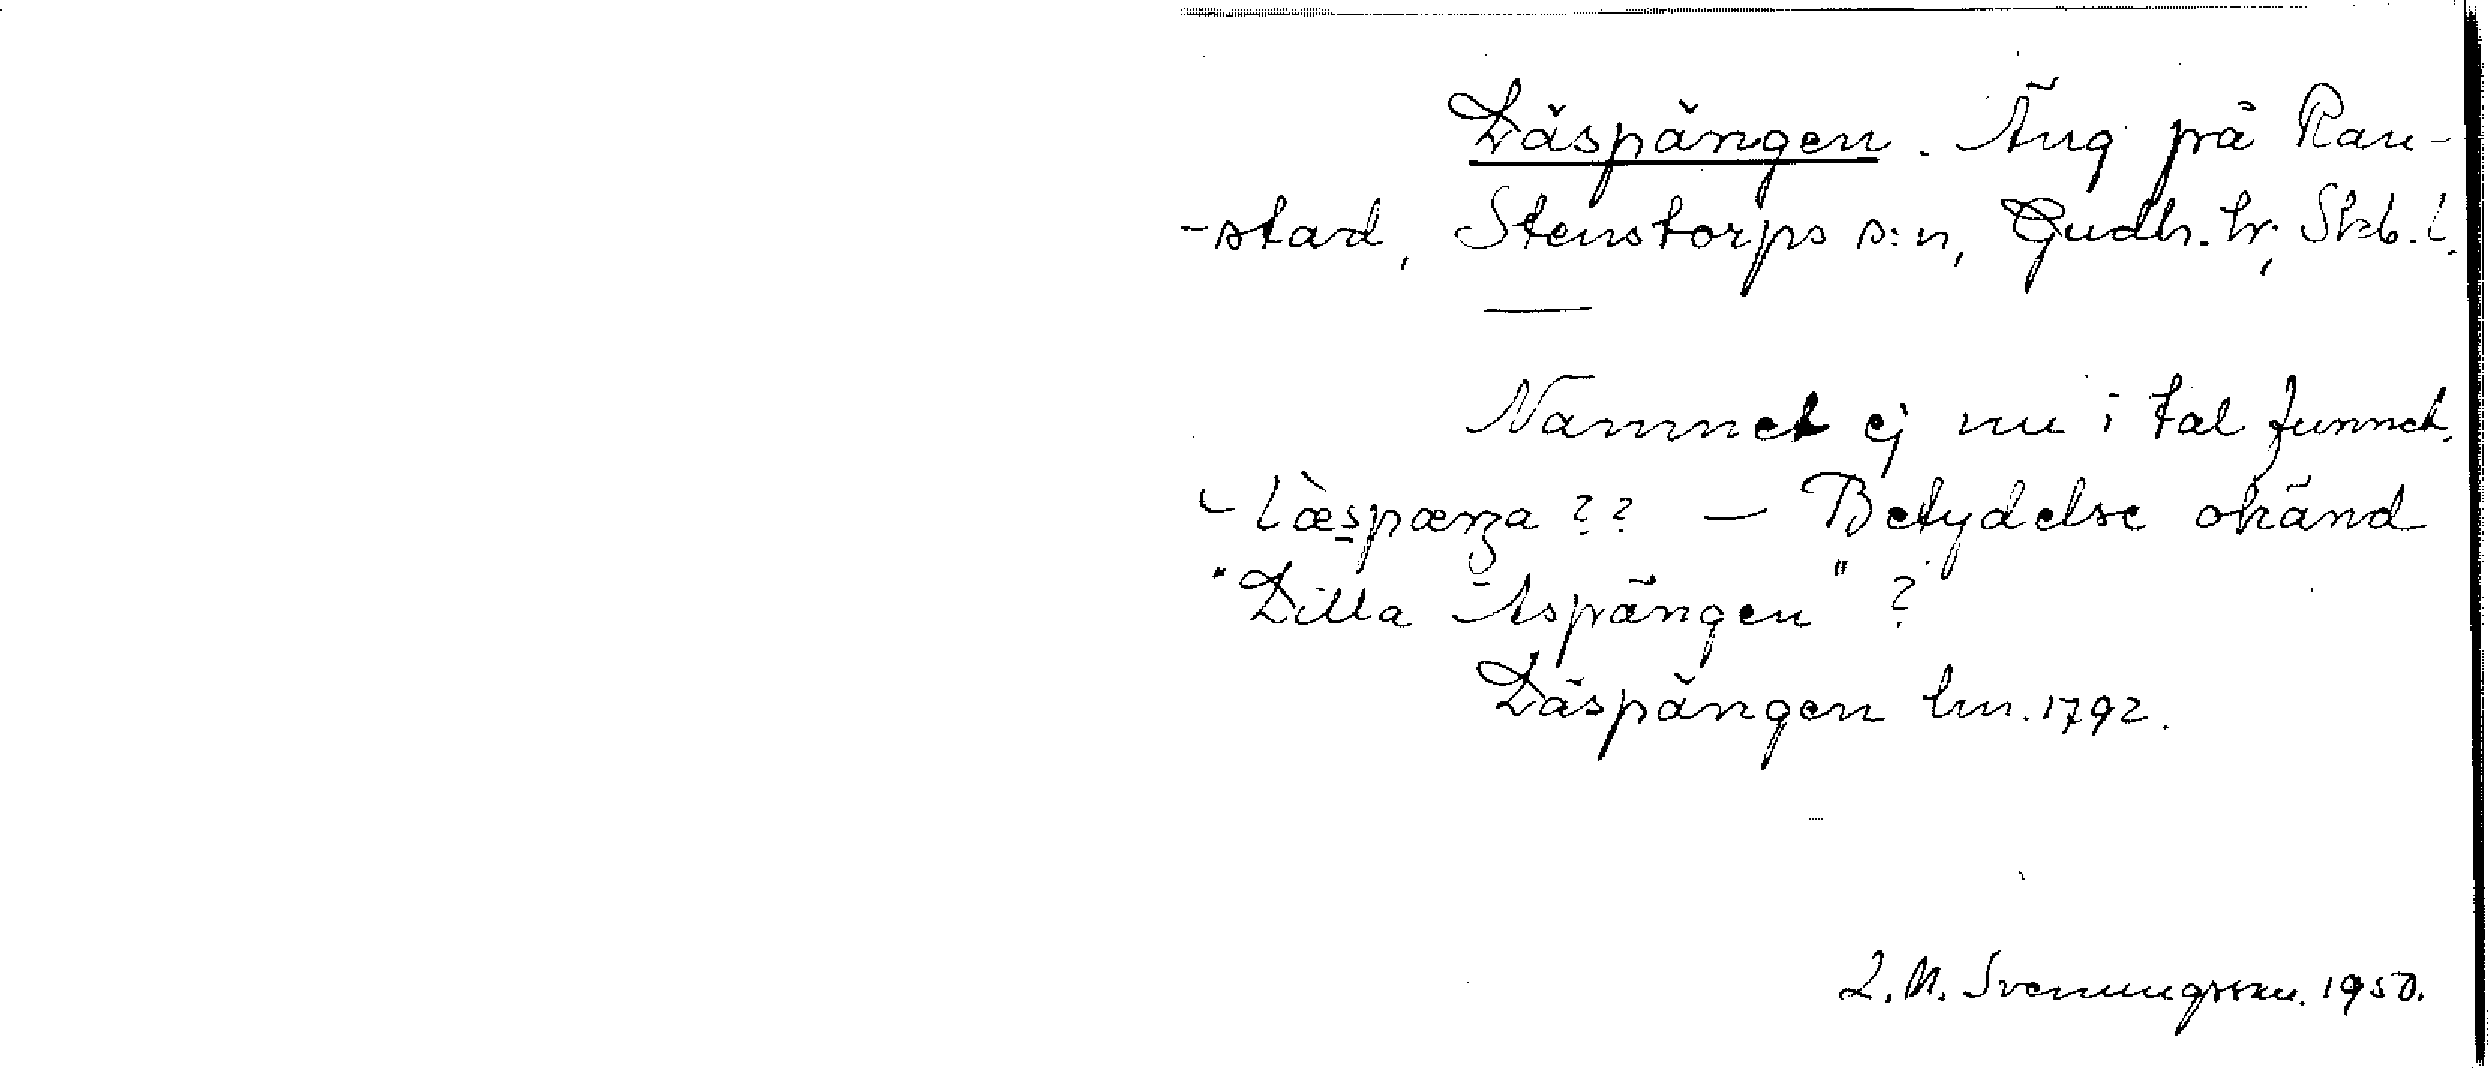 Läspängen. Äng på Ran-
-stad, Stenstorps s:n, Gudh. hr, Skb. l.
Namnet ej nu i tal funnet.
– lὰspæŋa ?? — Betydelse okänd
"Lilla Äspängen" ?
Läspängen lm. 1792.
L. M. Svenungsson. 1950.